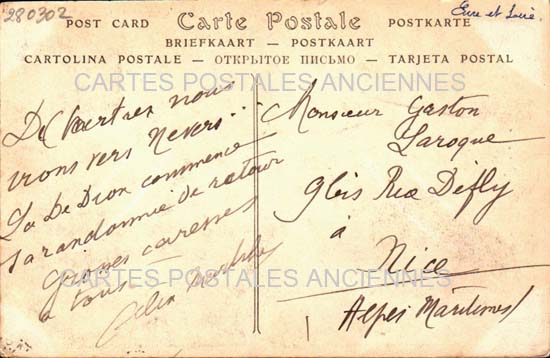 280302
Eure et Loire.
POST CARD Carte Postale POSTKARTE
BRIEFKAART — POSTKAART
CARTOLINA POSTALE — ОТКРЫТОЕ ПИСЬМО — TARJETA POSTAL
CARTES POSTALES ANCIENNES
De Chartres nous
irons vers Nevers...
La De Dion commence
sa randonnée de retour
Grosses caresses
a tous
Monsieur Gaston
Laroque
9 bis Rue Défly
à
Nice
Alpes Maritimes
CARTES POSTALES ANCIENNES